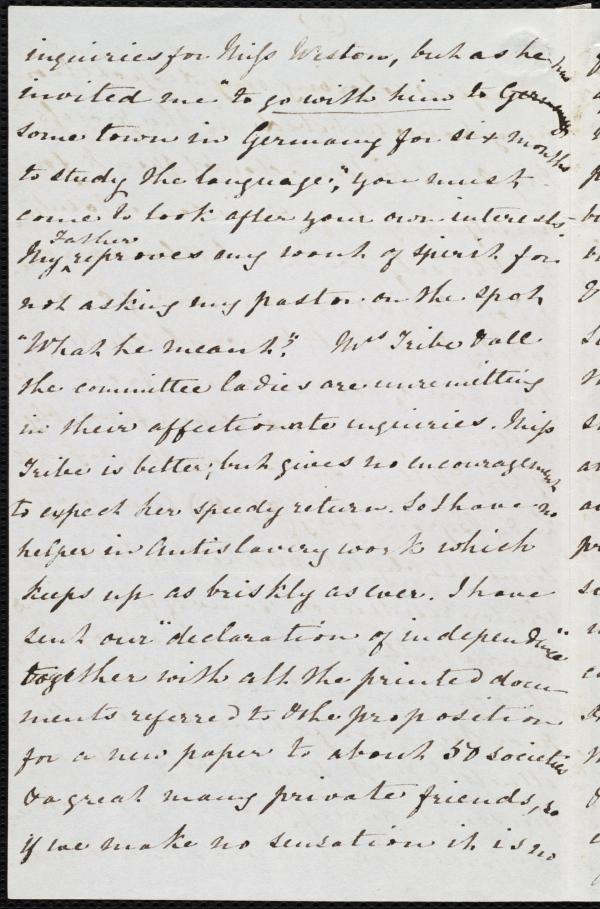 inquiries for Miss Weston, but as he has
invited me "to go with him to Germany
some town in Germany for six months
to study the language", you must
come to look after your own interests.
My Father reproves my want of spirit for
not asking my pastor on the spot
"What he meant?" Mrs Tribe & all
the committee ladies are unremitting
in their affectionate inquiries. Miss
Tribe is better, but gives no encouragement
to expect her speedy return. So I have no
helper in Antislavery work which
keeps up as briskly as ever. I have
sent our "declaration of independence"
together with all the printed docu-
ments referred to & the proposition
for a new paper to about 50 societies
& a great many private friends, so
if we make no sensation it is no